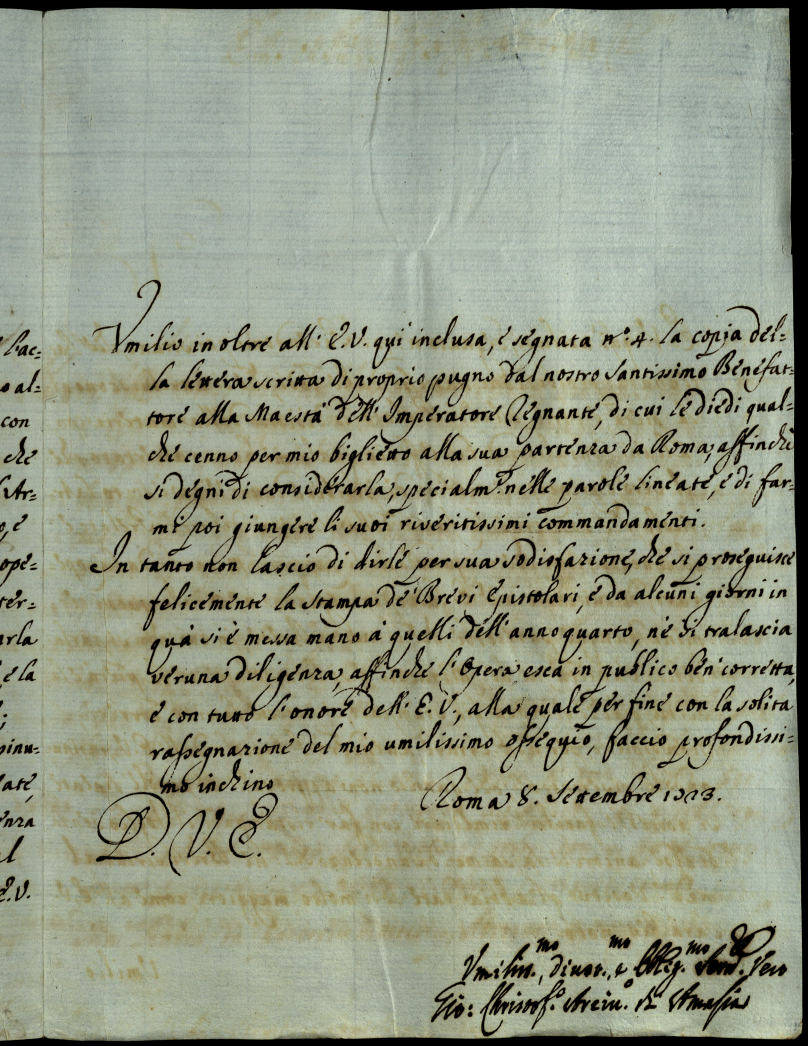 e l'ac=
o al=
con
che
l'Ar=
o, e
ope=
ter=
arla
, e la
sinu=
ate,
enza
al
E. V.
Umilio in oltre all' E. V. qui inclusa, e segnata n.º 4. la copia del=
la lettera scritta di proprio pugno dal nostro Santissimo Benefat=
tore alla Maestà dell' Imperatore Regnante, di cui le diedi qual=
che cenno per mio biglietto alla sua partenza da Roma, affinchè
si degni di considerarla, specialm.e nelle parole lineate, e di far=
mi poi giungere li suoi riveritissimi commandamenti.
In tanto non lascio di dirle per sua sodisfazione, che si proseguisce
felicemente la stampa de' Brevi Epistolari, e da alcuni giorni in
quà si è messa mano à quelli dell' anno quarto, nè si tralascia
veruna diligenza, affinche l'Opera esca in publico ben corretta,
e con tutto l'onore dell' E. V., alla quale per fine con la solita
rassegnazione del mio umilissimo ossequio, faccio profondissi=
mo inchino
Roma 8. Settembre 1723.
D. V. E.
Umiliss.mo, divot.mo, e Oblig.mo Serv.e Vero
Gio: Christof.o Arciv.o di Amasia